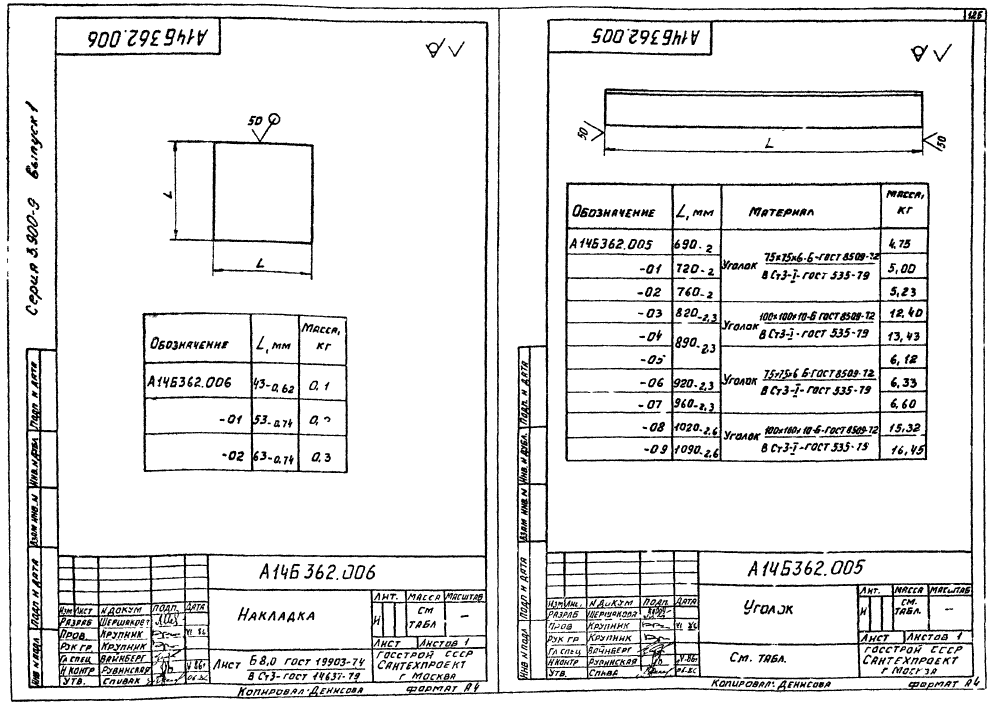 125
Серия 3.900-9 Выпуск 1
А14Б362.006
50
L
L
Обозначение L, мм Масса, кг
А14Б362.006 43-0,62 0,1
-01 53-0,74
-02 63-0,74 0,3
Инв. N подл Подп и дата Взам инв. N Инв. N дубл. Подп. и дата
А14Б362.006
Изм Лист N докум Подп. Дата
Разраб Шершакова
Пров Крупник
Рук гр. Крупник
Гл спец Вайнберг
Н контр Рувинская
Утв. Спивак
Накладка
Лит. Масса Масштаб
И См табл —
Лист Листов 1
Лист Б 8,0 ГОСТ 19903-74
В Ст3- ГОСТ 14637-79
Госстрой СССР
Сантехпроект
г Москва
Копировал: Денисова Формат А4
А14Б362.005
50
50
L
Обозначение L, мм Материал Масса, кг
А14Б362.005 690-2 Уголок 75х75х6-Б-ГОСТ 8509-72 4,75
-01 720-2 В Ст3-I-ГОСТ 535-79 5,00
-02 760-2 5,23
-03 820-2,3 Уголок 100х100х10-Б ГОСТ 8509-72 12,40
-04 890-2,3 В Ст3-I-ГОСТ 535-79 13,43
-05 6,12
-06 920-2,3 Уголок 75х75х6 Б-ГОСТ 8509-72 6,33
-07 960-2,3 В Ст3-I-ГОСТ 535-79 6,60
-08 1020-2,6 Уголок 100х100х10-Б-ГОСТ 8509-72 15,32
-09 1090-2,6 В Ст3-I-ГОСТ 535-75 16,45
Инв. N подл Подп и дата Взам инв. N Инв. N дубл. Подп. и дата
А14Б362.005
Изм Лис. N докум Подп. Дата
Разраб Шершакова
Пров Крупник
Рук гр Крупник
Гл спец Вайнберг
Н контр Рувинская
Утв. Спивак
Уголок
Лит. Масса Масштаб
И См. табл. —
Лист Листов 1
См. табл.
Госстрой СССР
Сантехпроект
г Москва
Копировал: Денисова Формат А4